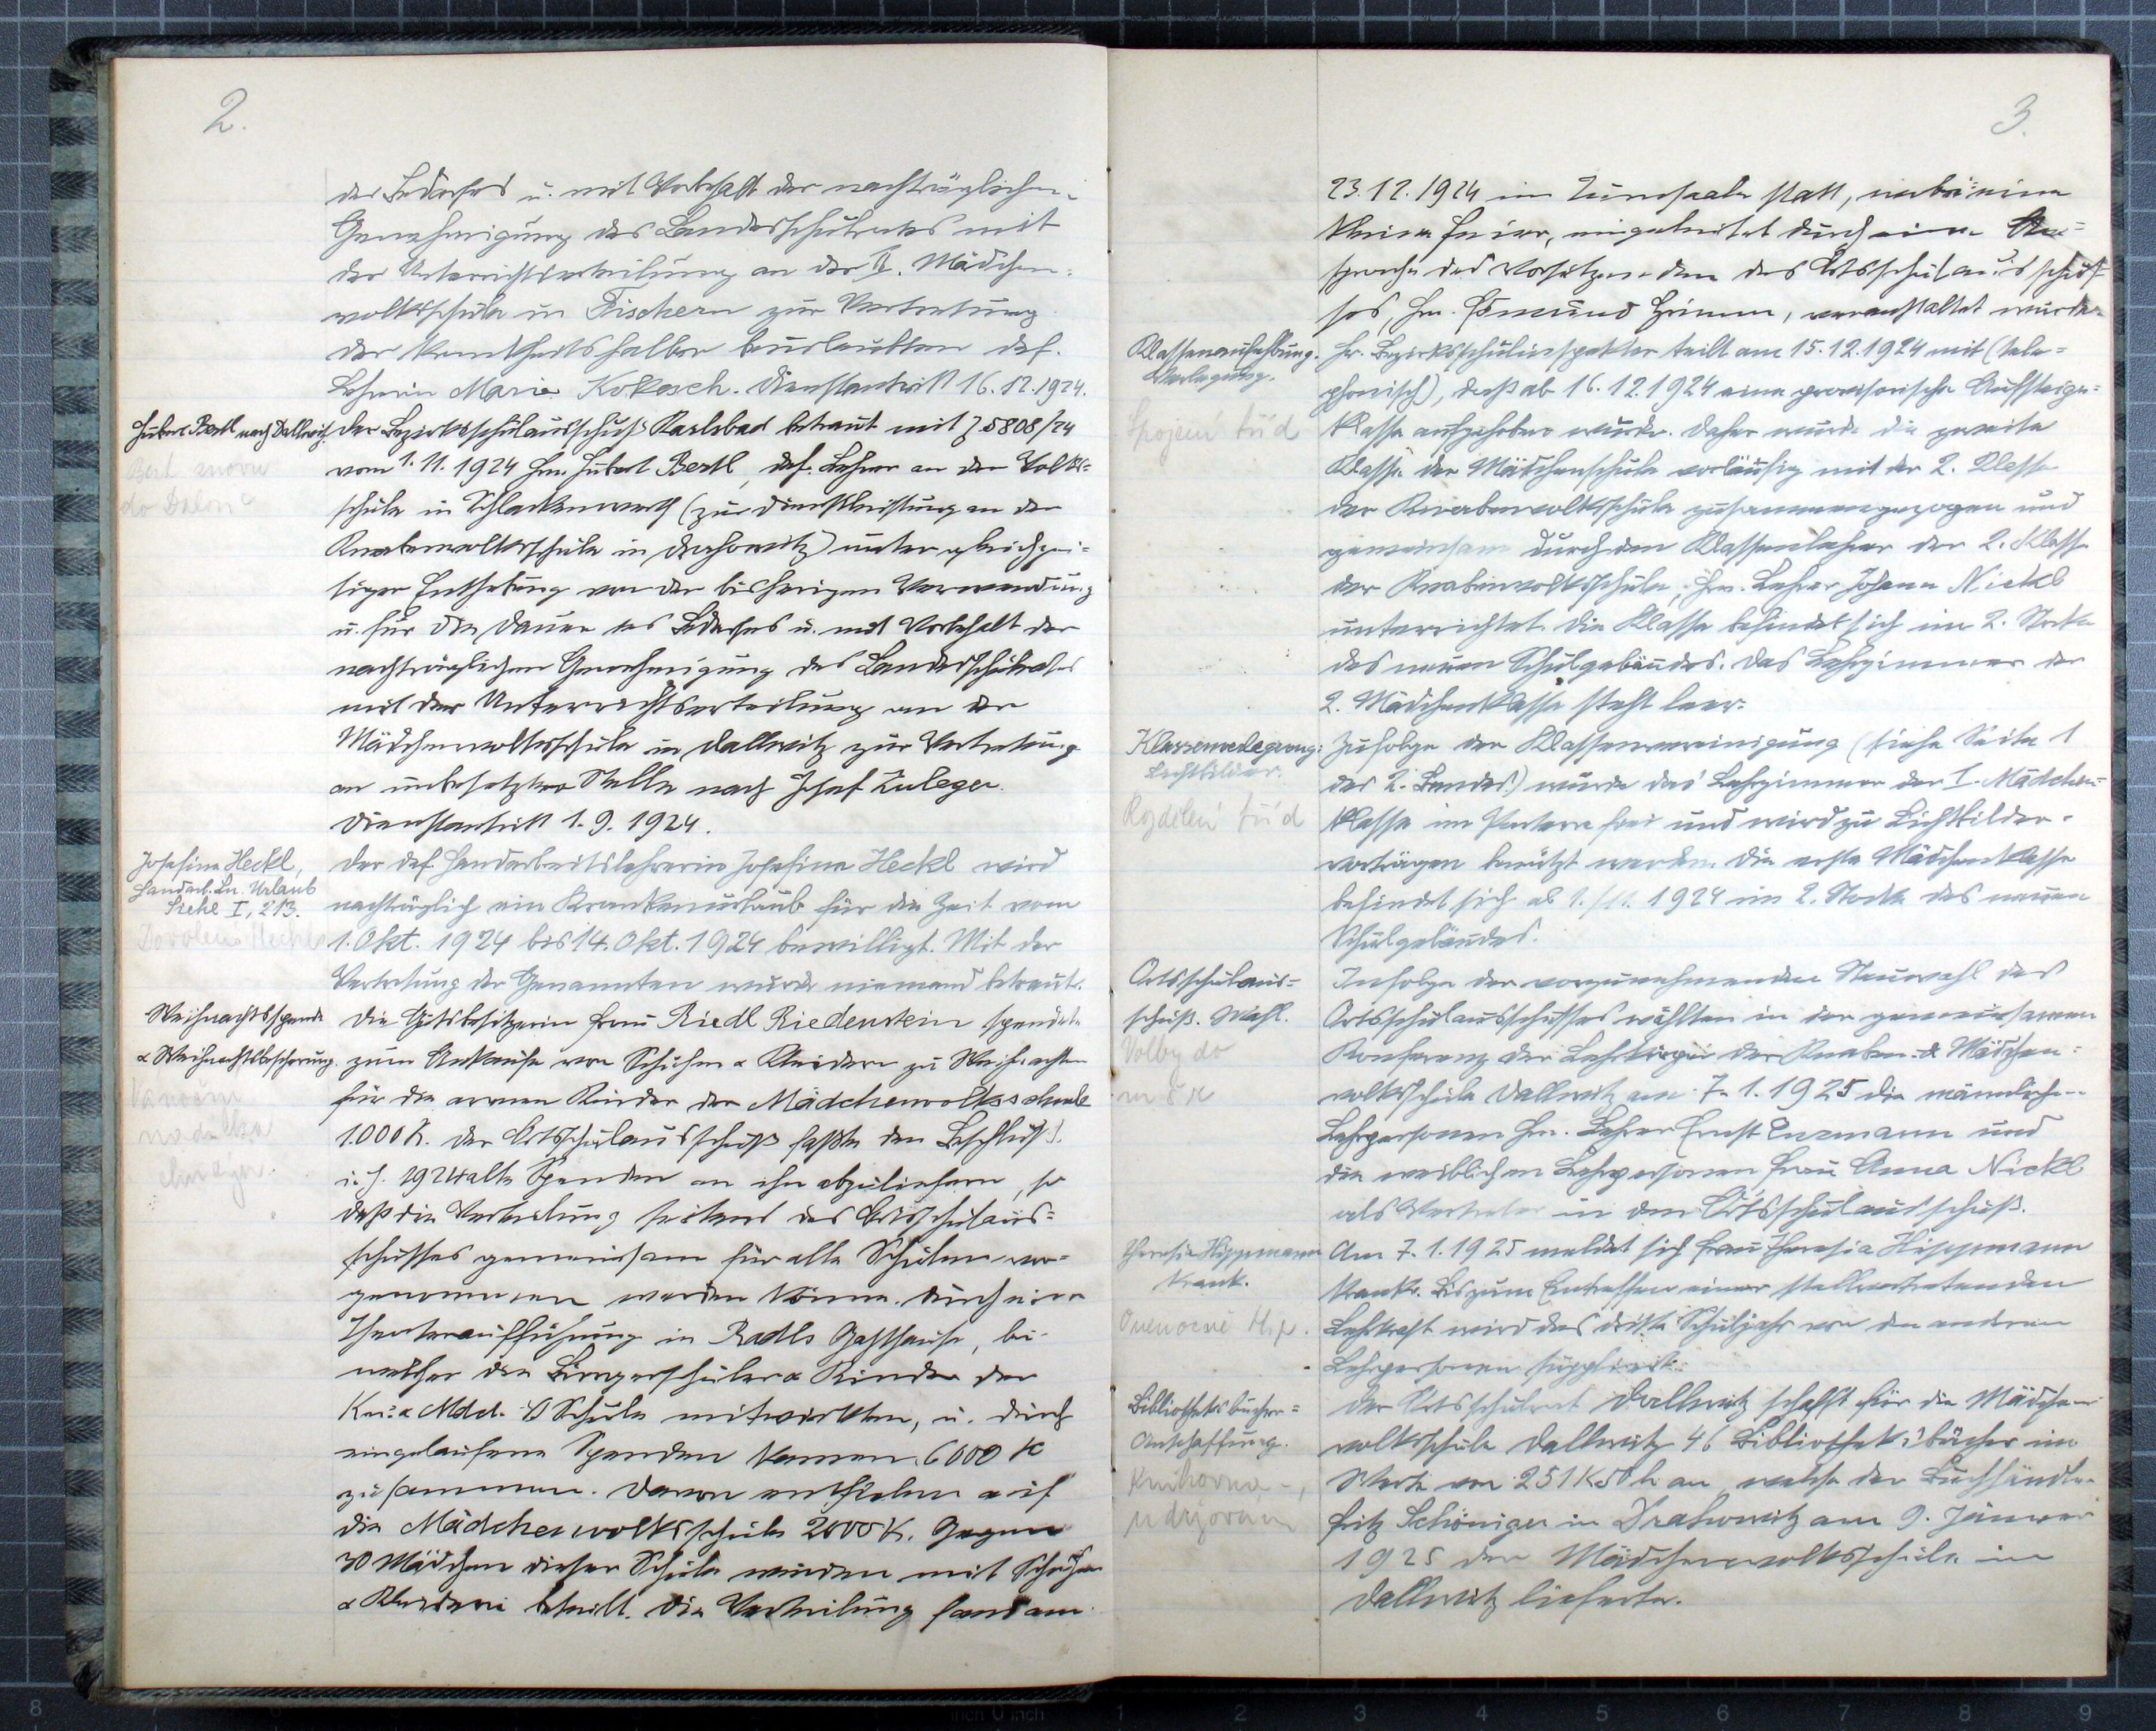 2.
des Bedarfes u. mit Vorbehalt der nachträglichen
Genehmigung des Landesschulrates mit
der Unterrichtserteilung an der II. Mädchen-
volksschule in Fischern zur Vertretung
der krankheitshalber beurlaubten def.
Lehrerin Maria Kokesch. Dienstantritt 16.12.1924.
Hubert Bertl nach Dallwitz.
Bertl znovu
do Dalovic
Der Bezirksschulausschuß Karlsbad betraut mit Z 5808/24
vom 1.11.1924 Hrn. Hubert Bertl, def. Lehrer an der Volks-
schule in Schlackenwerth (zur Dienstleistung an der
Knabenvolksschule in Drahowitz) unter gleichzei-
tiger Enthebung von der bisherigen Verwendung
u. für die Dauer des Bedarfes u. mit Vorbehalt der
nachträglichen Genehmigung des Landesschulrates
mit der Unterrichtserteilung an der
Mädchenvolksschule in Dallwitz zur Vertretung
an unbesetzter Stelle nach Josef Zuleger.
Dienstantritt 1.9.1924.
Josefine Heckl,
Handarb. Ln. Urlaub
Siehe I, 213.
Dovolená Heckl
Der def. Handarbeitslehrerin Josefine Heckl wird
nachträglich ein Krankenurlaub für die Zeit vom
1. Okt. 1924 bis 14. Okt. 1924 bewilligt. Mit der
Vertretung der Genannten wurde niemand betraut.
Weihnachtsspende
& Weihnachtsbescherung.
Vánoční
nadílka
Die Gutsbesitzerin Frau Riedl Riedenstein spendete
zum Ankaufe von Schuhen & Kleidern zu Weihnachten
für die armen Kinder der Mädchenvolksschule
1.000 K. Der Ortsschulausschuß faßte den Beschluß
i. J. 1924 alle Spenden an ihn abzuliefern, so
daß die Verteilung seitens des Ortsschulaus-
schusses gemeinsam für alle Schulen vor-
genommen werden könne. Durch eine
Theateraufführung in Radls Gasthause, bei
welcher die Bürgerschüler & Kinder der
Kn. & Mdch. V Schule mitwirkten, u. durch
eingelaufene Spenden kamen 6000 K
zusammen. Davon entfielen auf
die Mädchenvolksschule 2000 K. Gegen
30 Mädchen dieser Schule wurden mit Schuhen
& Kleidern beteilt. Die Verteilung fand am
3.
23.12.1924 im Turnsaale statt, wobei eine
kleine Feier, eingeleitet durch eine An-
sprache des Vorsitzenden des Ortsschulausschus-
ses, Hrn. Edmund Grimm, veranstaltet wurde.
Klassenaufhebung.
Verlegung.
Spojení tříd
Hr. Bezirksschulinspektor teilt am 15.12.1924 mit (tele-
phonisch), daß ab 16.12.1924 eine provisorische Aufsteige-
klasse aufgehoben wurde. Daher wurde die zweite
Klasse der Mädchenschule vorläufig mit der 2. Klasse
der Knabenvolksschule zusammengezogen und
gemeinsam durch den Klassenlehrer der 2. Klasse
der Knabenvolksschule, Hrn. Lehrer Johann Nickl
unterrichtet. Die Klasse befindet sich im 2. Stocke
des neuen Schulgebäudes. Das Lehrzimmer der
2. Mädchenklasse steht leer.
Klassenverlegung:
Lichtbilder.
Rozdělení tříd
Zufolge der Klassenvereinigung (siehe Seite 1
des 2. Bandes!) wurde das Lehrzimmer der I. Mädchen-
klasse im Parterre frei und wird zu Lichtbilder-
vorträgen benützt werden. Die erste Mädchenklasse
befindet sich ab 1./11. 1924 im 2. Stocke des neuen
Schulgebäudes.
Ortsschulaus-
schuß. Wahl.
Volby do
m š r
Infolge der vorzunehmenden Neuwahl des
Ortsschulausschusses wählten in der gemeinsamen
Konferenz der Lehrkörper der Knaben- & Mädchen-
volksschule Dallwitz am 7.1.1925 die männlichen
Lehrpersonen Hrn. Lehrer Ernst Enzmann und
die weiblichen Lehrpersonen Frau Anna Nickl
als Vertreter in den Ortsschulausschuß.
Theresia Hippmann
krank.
Onemocnění Hip.
Am 7.1.1925 meldet sich Frau Theresia Hippmann
krank. Bis zum Eintreffen einer stellvertretenden
Lehrkraft wird das dritte Schuljahr von den anderen
Lehrpersonen suppliert.
Bibliotheksbücher-
Anschaffung.
Knihovna -
Der Ortsschulrat Dallwitz schafft für die Mädchen-
volksschule Dallwitz 46 Bibliotheksbücher im
Werte von 251 K 50 h an, welche der Buchhändler
Fritz Schöniger in Drahowitz am 9. Jänner
1925 der Mädchenvolksschule in
Dallwitz lieferte.
inch 0 inch
8
1
2
3
4
5
6
7
8
9